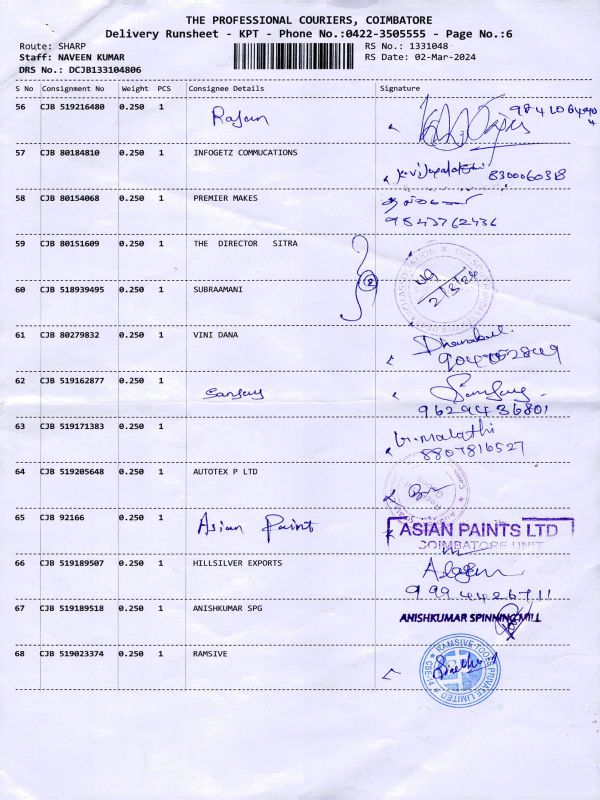 THE PROFESSIONAL COURIERS, COIMBATORE
Delivery Runsheet - KPT - Phone No.:0422-3505555 - Page No.:6
Route: SHARP
RS No.: 1331048
Staff: NAVEEN KUMAR
RS Date: 02-Mar-2024
DRS No.: DCJB133104806
S No Consignment No Weight PCS Consignee Details Signature
56 CJB 519216480 0.250 1 Rajan
57 CJB 80184810 0.250 1 INFOGETZ COMMUCATIONS
8300060313
58 CJB 80154068 0.250 1 PREMIER MAKES
9843762436
59 CJB 80151609 0.250 1 THE DIRECTOR SITRA
2
2/3/24
60 CJB 518939495 0.250 1 SUBRAAMANI
61 CJB 80279832 0.250 1 VINI DANA
62 CJB 519162877 0.250 1 Sanjay Sanjay
9629436801
63 CJB 519171383 0.250 1 G. Malathi
8807816527
64 CJB 519205648 0.250 1 AUTOTEX P LTD
65 CJB 92166 0.250 1 Asian Paint ASIAN PAINTS LTD
COIMBATORE UNIT
66 CJB 519189507 0.250 1 HILLSILVER EXPORTS
9994426711
67 CJB 519189518 0.250 1 ANISHKUMAR SPG ANISHKUMAR SPINNING MILL
68 CJB 519023374 0.250 1 RAMSIVE RAMSIVE TOOLS PRIVATE LIMITED
CBE-14